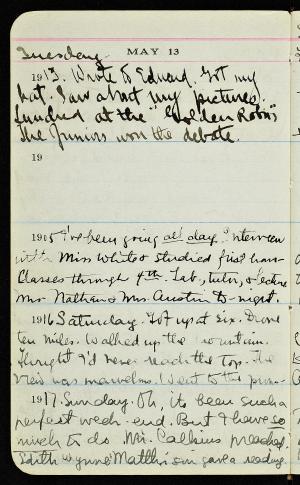 Tuesday
MAY 13
1913. Wrote to Edward. Got my
hat. Saw about my pictures.
Lunched at the "Golden Robin"
The Juniors won the debate.
19
1915 I've been going all day. Interview
with Miss White & studied first hour
Classes through 4th Lab., tutor, & lecture
Mr Nathan & Mrs. Austin to-night.
1916 Saturday. Got up at six. Drove
ten miles. Walked up the mountain.
Thought I'd never reach the top. The
view was marvelous. Went to the
1917. Sunday. Oh, its been such a
perfect week-end. But I have so
much to do. Mr. Calkins preached.
Edith Wynne Matthison gave a reading.